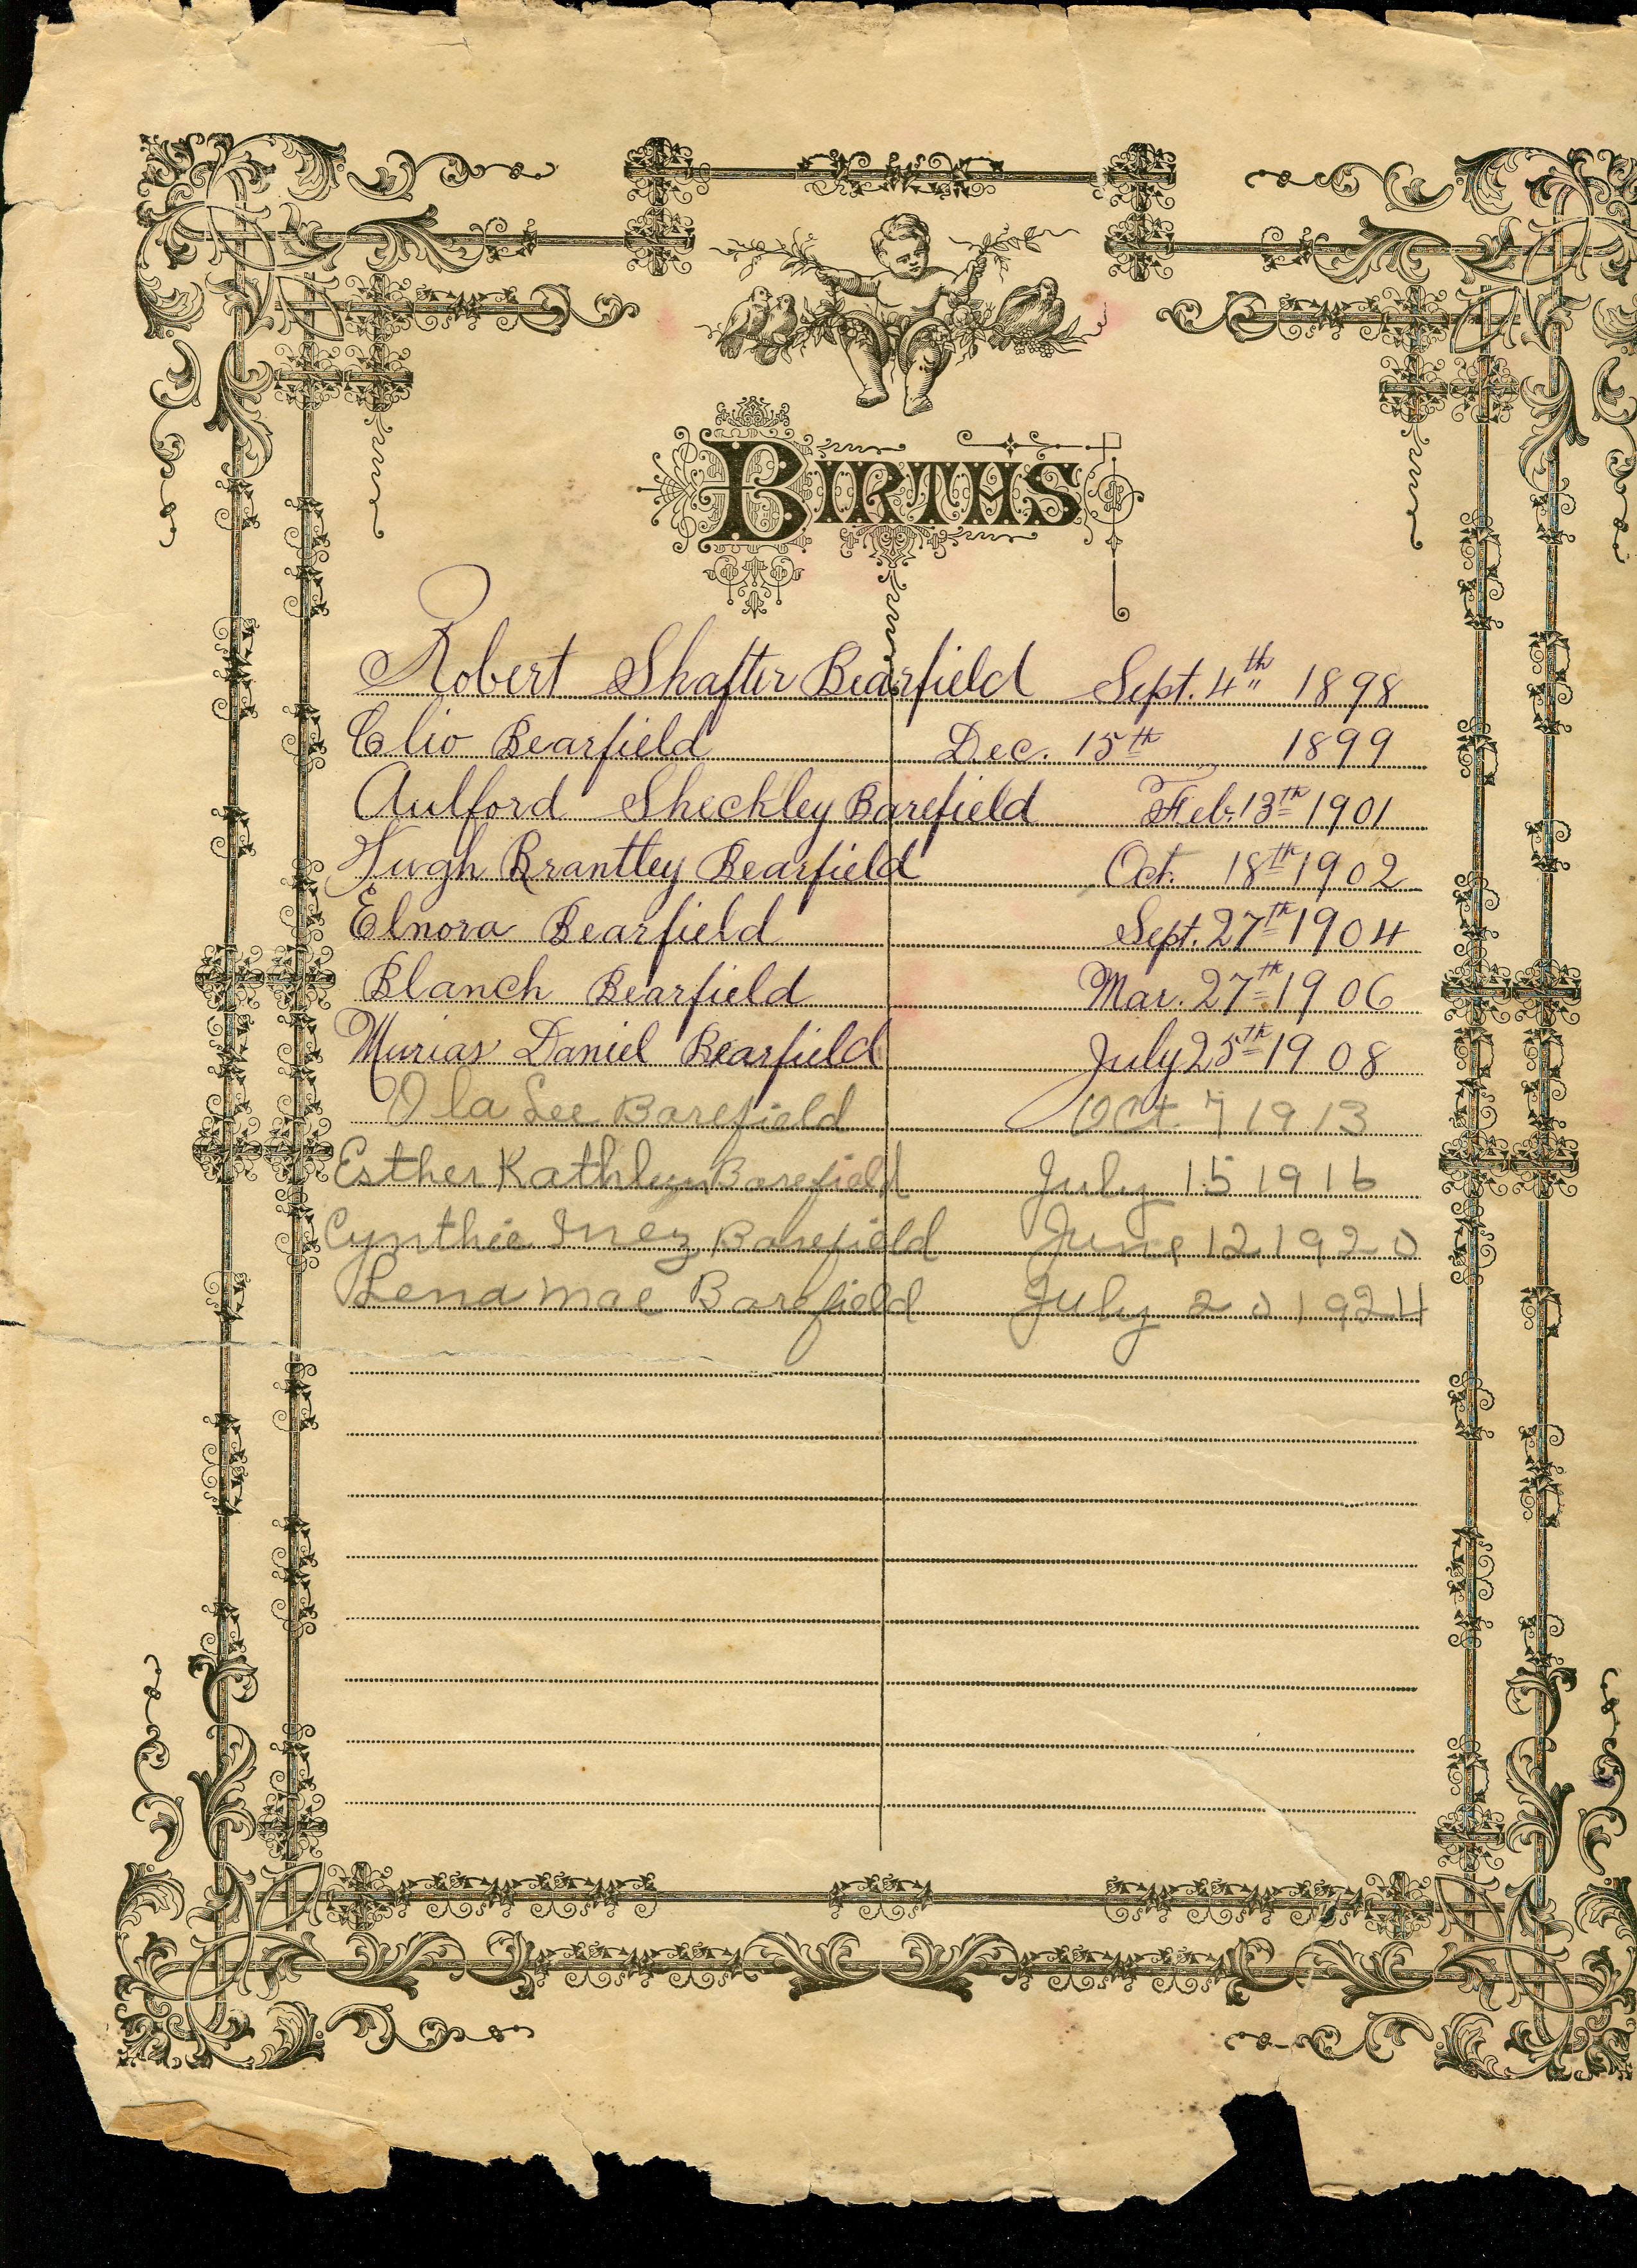 BIRTHS
Robert Shafter Bearfield Sept. 4th 1898
Clio Bearfield Dec. 15th 1899
Aulford Sheckley Barefield Feb. 13th 1901
Hugh Brantley Bearfield Oct. 18th 1902
Elnora Bearfield Sept. 27th 1904
Blanch Bearfield Mar. 27th 1906
Murias Daniel Bearfield July 25th 1908
Ola Lee Barefield Oct. 7 1913
Esther Kathleyn Barefield July 15 1916
Cynthie Inez Barefield June 12 1920
Lena Mae Barefield July 20 1924